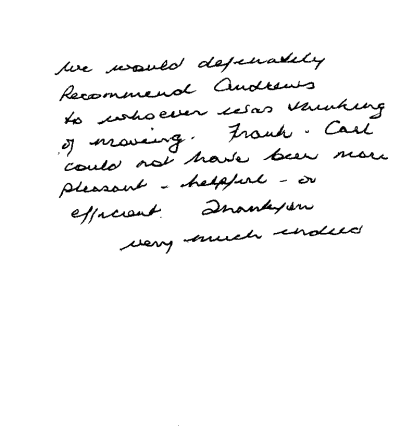 We would definately
Recommend Andrews
to whoever was thinking
of moving. Frank - Carl
could not have been more
pleasant - helpful - or
efficient. Thankyou
very much indeed